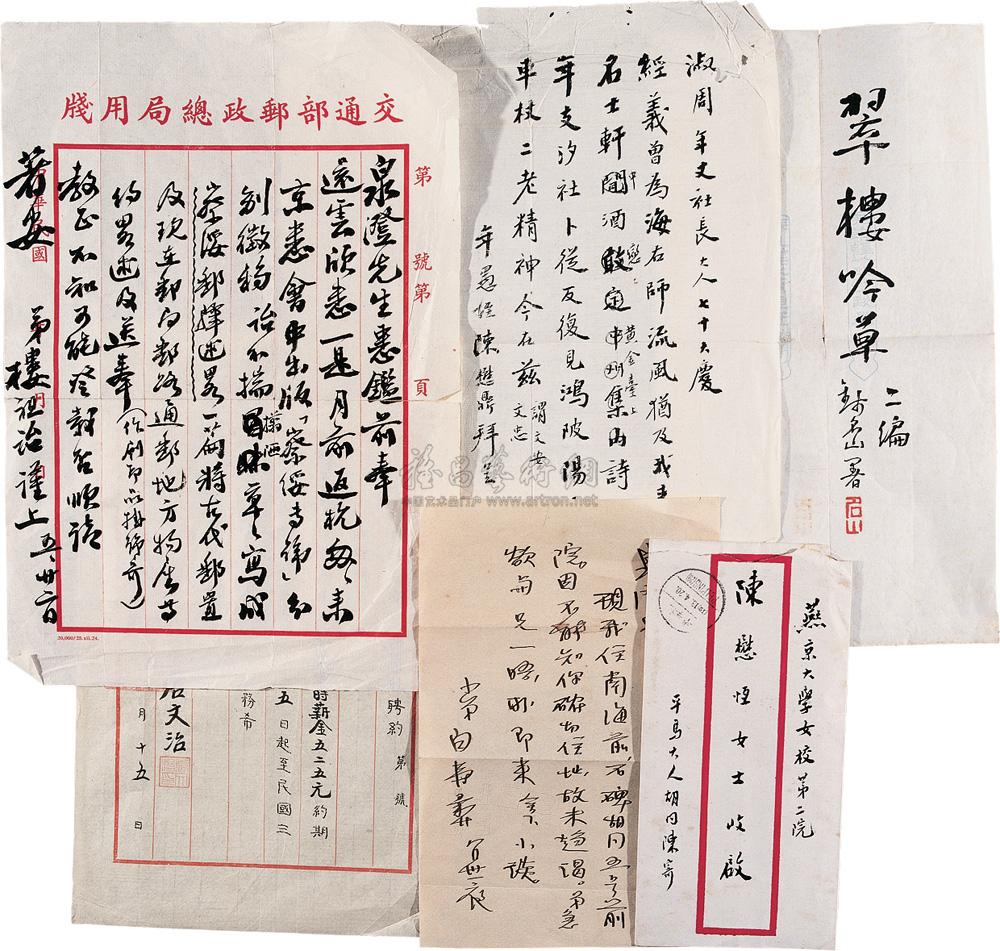 交通部郵政總局用牋
第 號第 頁
泉澄先生惠鑑前奉
還雲欣悉一是月前返杭匆匆未
京悉會中出版「察綏專號」分
別徵稿詒不揣檮昧草草寫成
察綏郵驛述畧一篇將古代郵置
及現在郵局郵路通郵地方物產等
約畧述及送奉(作刷印品掛號寄)
教正不知可能登載否順請
著安
弟樓祖詒謹上 五、廿六
20,000/28.xii.24.
淑周年丈社長大人七十大慶
經義曾為海右師流風猶及我
名士軒閒酒
集山詩
年支汐社卜從反復見鴻陂陽
車杖二老精神今在茲
謂文安
文忠
年愚姪陳懋鼎拜呈
黃金臺上
翠樓吟草
二編
錢名山署
名山
聘約 第 號
時薪金五二五元約期
五日起至民國三
務希
文治
月十五日
現我住南海前石碑胡同五號前
院。因不能知你確切住址,故未趨謁。弟急
欲與兄一晤,
即來舍小談。
小弟白壽彝
廿一夜
燕京大學女校第二院
陳懋恆女士收啟
平馬大人胡同陳寄